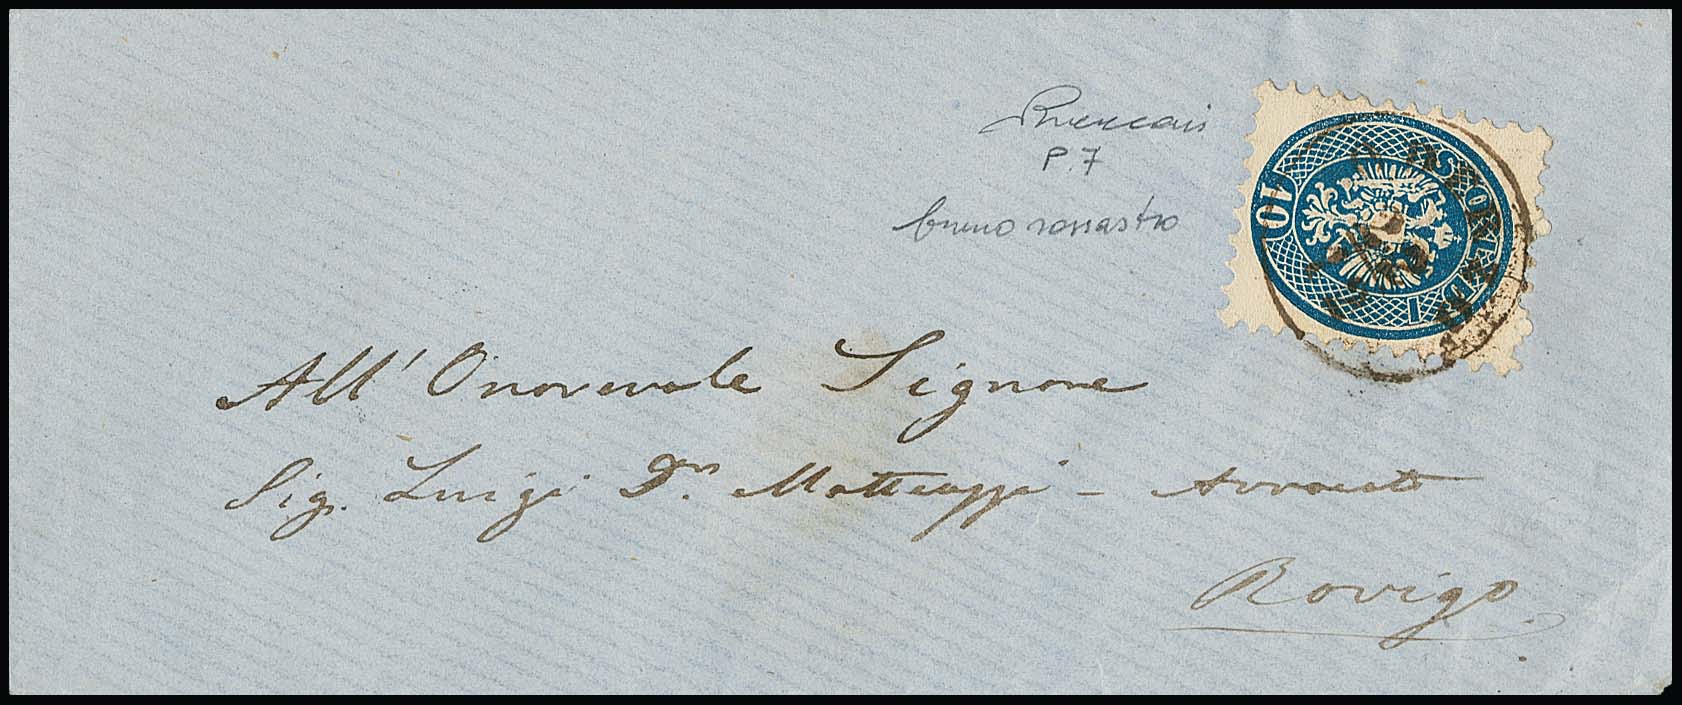 P. 7
bruno rossastro
10
SOLDI
All' Onorevole Signore
Sig. Luigi Dn. Matteazzi - Avvocato
Rovigo